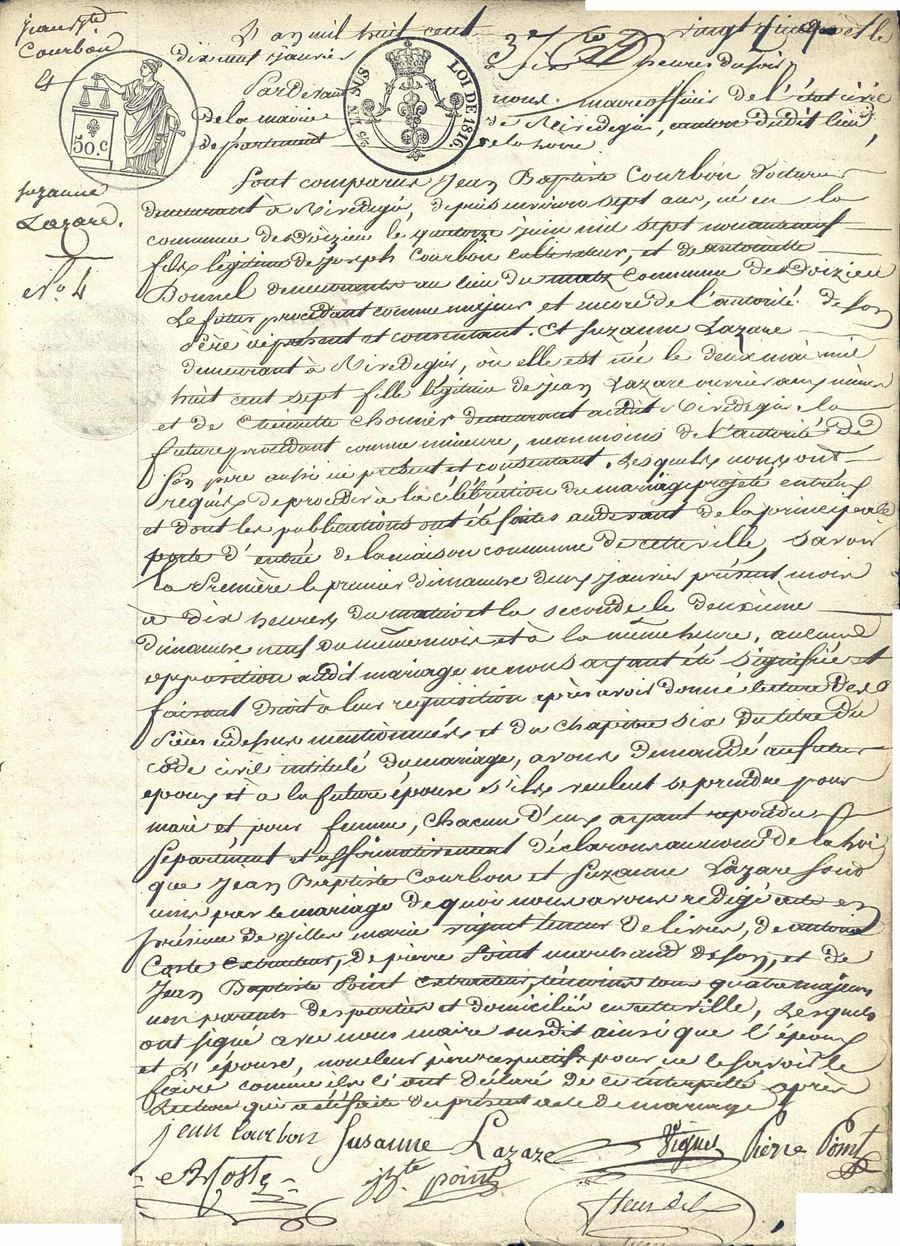 jean Bte
Courbon
4
L'an mil huit cent vingt cinq et le
dix neuf janvier 37 à six heures du soir
Pardevant nous maire officier de l'état civil
de la mairie de Rivedegier, canton dudit lieu,
département de la Loire.
50. C
25 EN SUS
LOI DE 1816.
Suzanne
Lazare.
No. 4
Sont comparus Jean Baptiste Courbon voiturier
demeurant à Rivedegier, depuis environ sept ans, né en la
commune de Doizieu le quatorze juin mil sept nonante neuf
fils légitime de joseph Courbon cultivateur, et de antoinette
Bonnel demeurants au lieu du commune de Doizieu
Le futur procédant comme majeur et encore de l'autorité de son
père ici présent et consentant. Et Suzanne Lazare
demeurant à Rivedegier, où elle est née le deux mai mil
huit cent sept fille légitime de jean Lazare ouvrier aux mines
et de Chomier demeurant audit Rivedegier. la
future procédant comme mineure, néanmoins de l'autorité de
son père aussi ici présent et consentant. Lesquels nous ont
requis de procéder à la célébration du mariage projeté entr'eux
et dont les publications ont été faites audevant de la principale
porte d'entrée de la maison commune de cette ville, savoir
La Première le premier dimanche deux janvier présent mois
à dix heures du matin et la seconde le deuxième
dimanche neuf du même mois et à la même heure, aucune
opposition audit mariage ne nous ayant été signifiée et
faisant droit à leur requisition après avoir donné lecture des
pièces cidessus mentionnées et du chapitre six du titre du
code civil intitulé du mariage, avons demandé au futur
époux et à la future épouse s'ils veulent se prendre pour
mari et pour femme, chacun d'eux ayant repondu
séparément et affirmativement déclarons au nom de la Loi
que Jean Baptiste Courbon et Suzanne Lazare sont
unis par le mariage de quoi nous avons rédigé acte en
présence de gilles marie teneur de livres, de antoine
Coste extracteur, de pierre Point marchand de son, et de
Jean Baptiste Point extracteur, témoins tous quatre majeurs
non parents des parties et domiciliés en cette ville, Lesquels
ont signé avec nous maire susdit ainsi que l'époux
et L'épouse, non leur pères respectifs pour ne le savoir le
faire comme ils l'ont déclaré de ce interpellé après
Lecture qui a été faite du présent acte de mariage
jean Courbon Susanne Lazare Pierre Point
A Coste jn Bte point